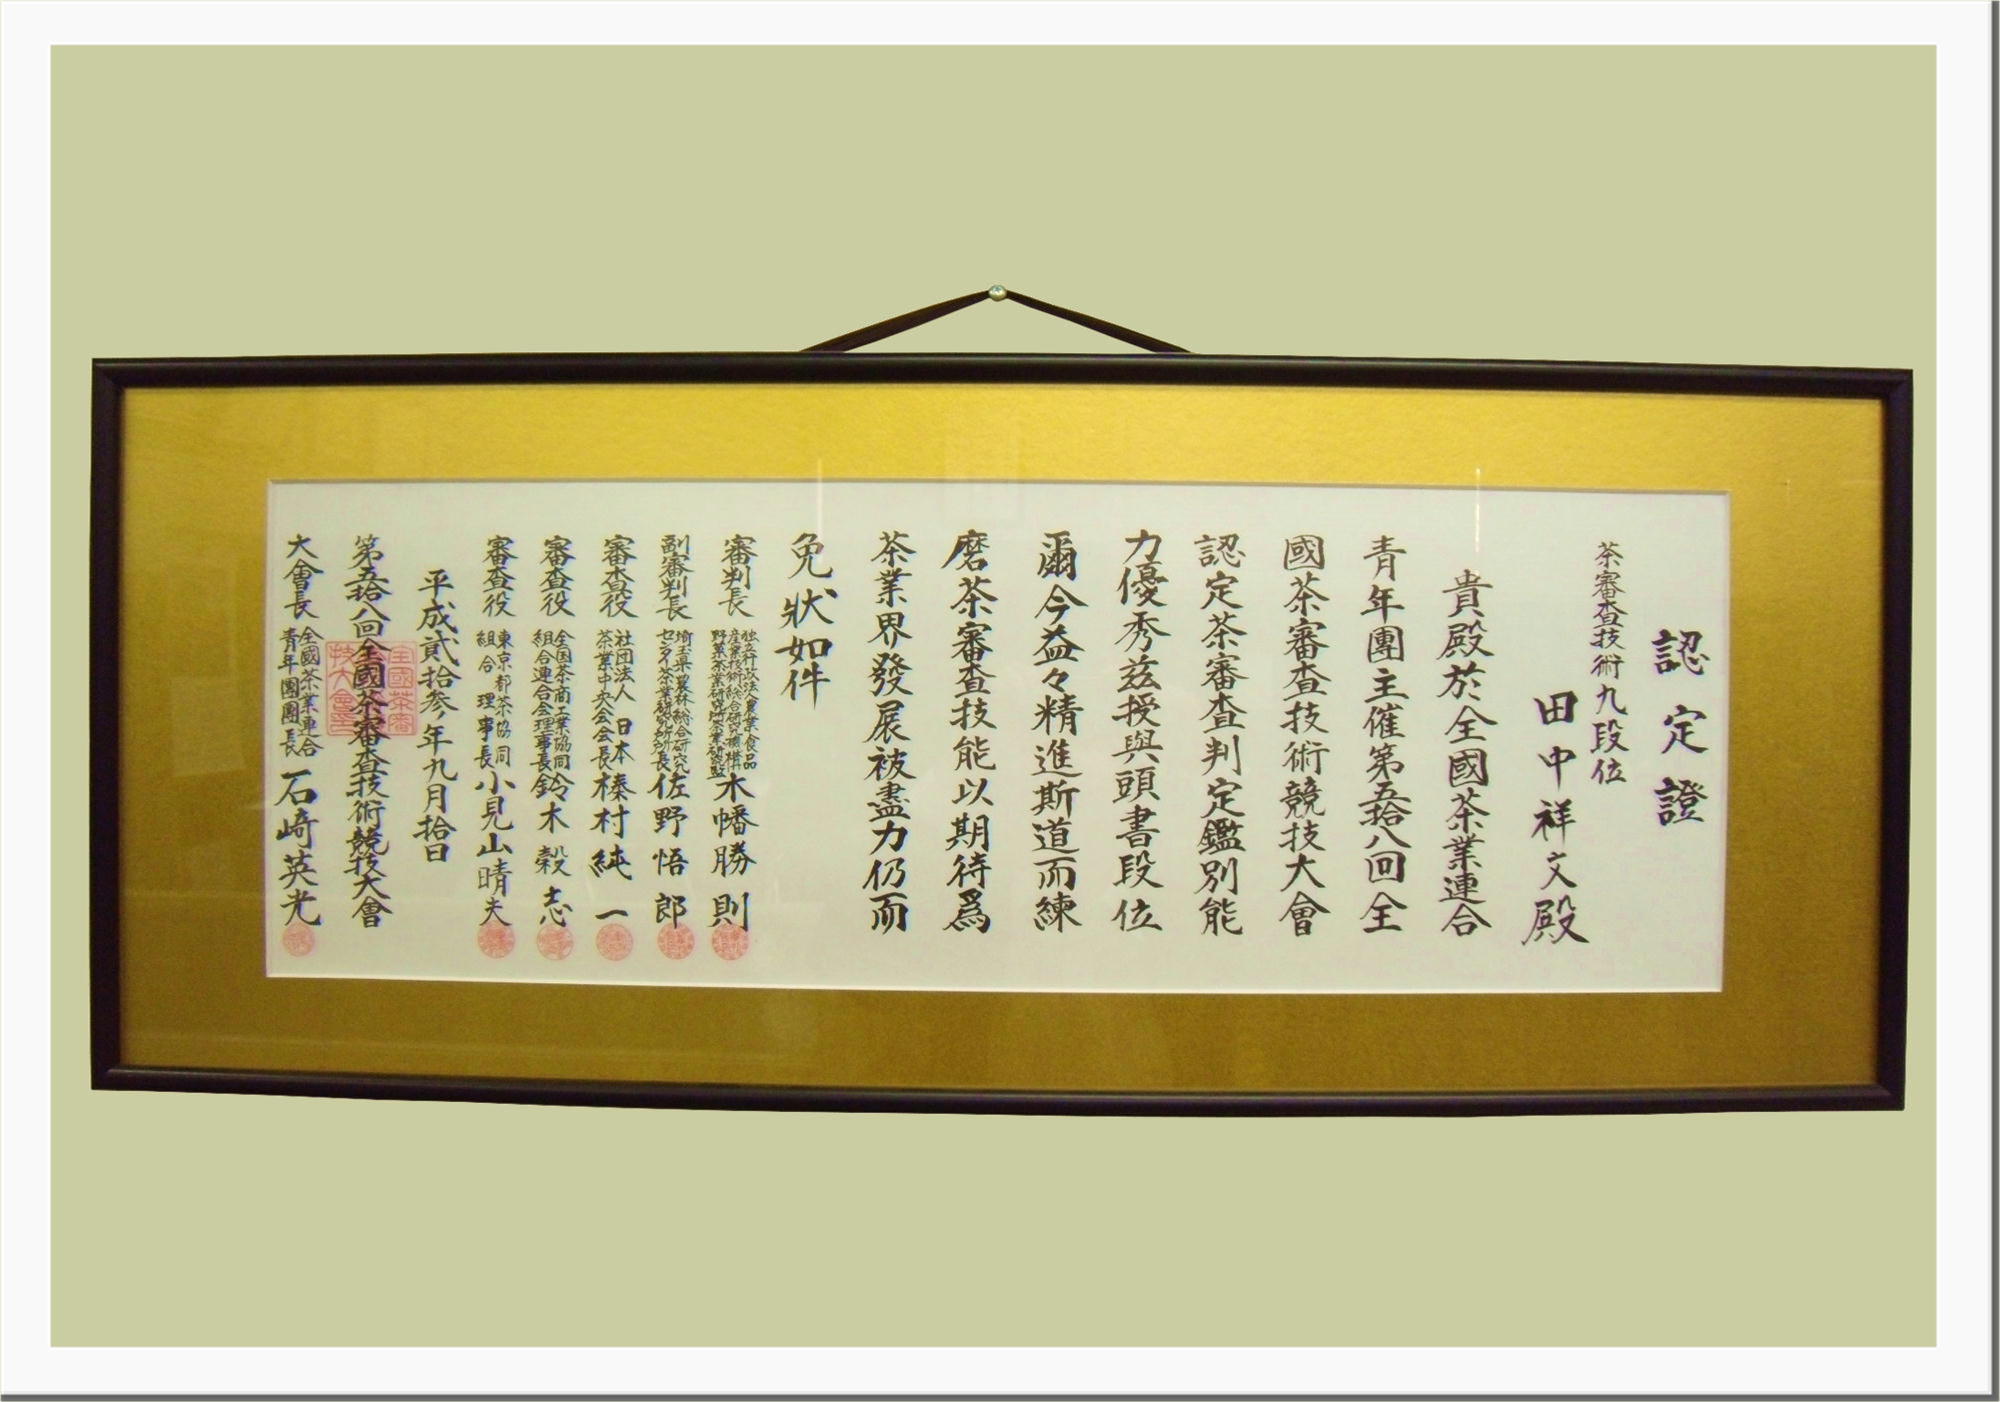 認定證
茶審査技術九段位
田中祥文殿
貴殿於全國茶業連合
青年團主催第五拾八回全
國茶審査技術競技大會
認定茶審査判定鑑別能
力優秀茲授與頭書段位
爾今益々精進斯道而練
磨茶審査技能以期待爲
茶業界發展被盡力仍而
免狀如件
審判長 独立行政法人農業食品
産業技術総合研究機構
野菜茶業研究所茶業研究監 木幡勝則
副審判長 埼玉県農林総合研究
センター茶業研究所所長 佐野悟郎
審査役 社団法人日本
茶業中央会会長 榛村純一
審査役 全国茶商工業協同
組合連合会理事長 鈴木穀志
審査役 東京都茶協同
組合理事長 小見山晴夫
平成貳拾参年九月拾日
第五拾八回全國茶審査技術競技大會
大會長 全國茶業連合
青年團團長 石崎英光